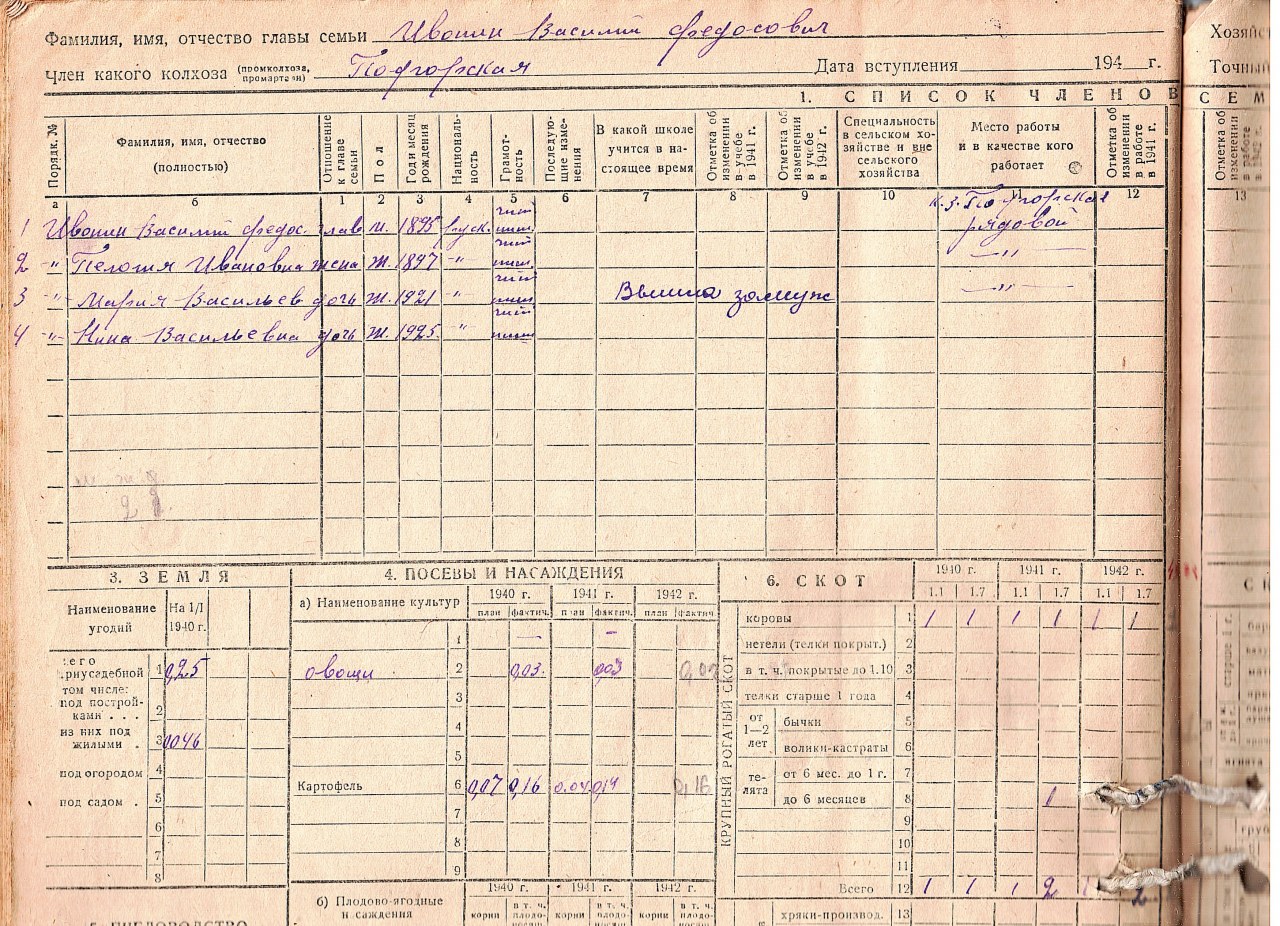 Фамилия, имя, отчество главы семьи Ивонин Василий Федосович
Хозяйс
Член какого колхоза (промколхоза, промартели) Подгорская Дата вступления 194 г.
Точный
1. СПИСОК ЧЛЕНОВ СЕМ
Порядк. № Фамилия, имя, отчество (полностью) Отношение к главе семьи Пол Год и месяц рождения Национальность Грамотность Последующие изменения В какой школе учится в настоящее время Отметка об изменении в учебе в 1941 г. Отметка об изменении в учебе в 1942 г. Специальность в сельском хозяйстве и вне сельского хозяйства Место работы и в качестве кого работает Отметка об изменении в работе в 1941 г. Отметка об изменении в работе
а б 1 2 3 4 5 6 7 8 9 10 11 12 13
1 Ивонин Василий Федос. глав м. 1895 русск. к-з. Подгорская рядовой
2 -"- Пелогия Ивановна жена ж. 1897 -"- -"-
3 -"- Мария Васильев дочь ж. 1921 -"- Вышла замуж -"-
4 -"- Нина Васильевна дочь ж. 1925 -"-
3. ЗЕМЛЯ
Наименование угодий На 1/I 1940 г.
всего приусадебной 1 0,25
том числе: под постройками . . . 2
из них под жилыми . 3 0046
под огородом 4
под садом . 5
6
7
8
4. ПОСЕВЫ И НАСАЖДЕНИЯ
а) Наименование культур 1940 г. 1941 г. 1942 г.
план фактич. план фактич. план фактич.
1 — —
овощи 2 0,03. 0,03 0,03
3
4
5
Картофель 6 0,07 0,16 0.04 0,14 0,16
7
8
9
б) Плодово-ягодные насаждения 1940 г. 1941 г. 1942 г.
корни в т. ч. плодонос. корни в т. ч. плодонос. корни в т. ч. плодонос.
6. СКОТ
1940 г. 1941 г. 1942 г.
1.1 1.7 1.1 1.7 1.1 1.7
КРУПНЫЙ РОГАТЫЙ СКОТ
коровы 1 1 1 1 1 1 1
нетели (телки покрыт.) 2
в т. ч. покрытые до 1.10 3
телки старше 1 года 4
от 1—2 лет бычки 5
волики-кастраты 6
телята от 6 мес. до 1 г. 7
до 6 месяцев 8 1
9
10
11
Всего 12 1 1 1 2 1 2
хряки-производ. 13
5. ПЧЕЛОВОДСТВО